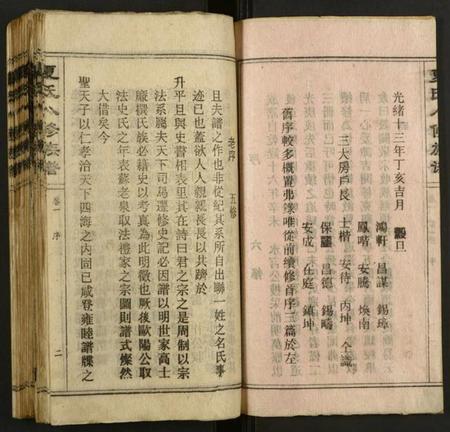 光緒十三年丁亥吉月 穀旦
鴻軒 昌謀 錫璋
鳳喈 安騰 煥南
三大房戶長 士楷 安待 丙坤 仝識
保羅 昌德 錫疇
安成 在庭 鎮坤
舊序較多概置弗錄唯從前續修首序三篇於左
老序 五修
且夫譜之作也非從紀其系所自出聯一姓之名氏事
迹已也蓋欲人人親親長長以共躋於
升平且與史書相表里其在詩曰君之宗之是周制以宗
法系屬夫天下司馬遷修史記必因譜以明世家高士
廉撰氏族必藉史以考真為此明徵也厥後歐陽公取
法史氏之年表蘇老泉取法禮家之宗圖則譜式燦然
大借矣今
聖天子以仁孝治天下四海之内同已咸登雍睦譜牒之
夏氏八修族譜
卷一 序
二